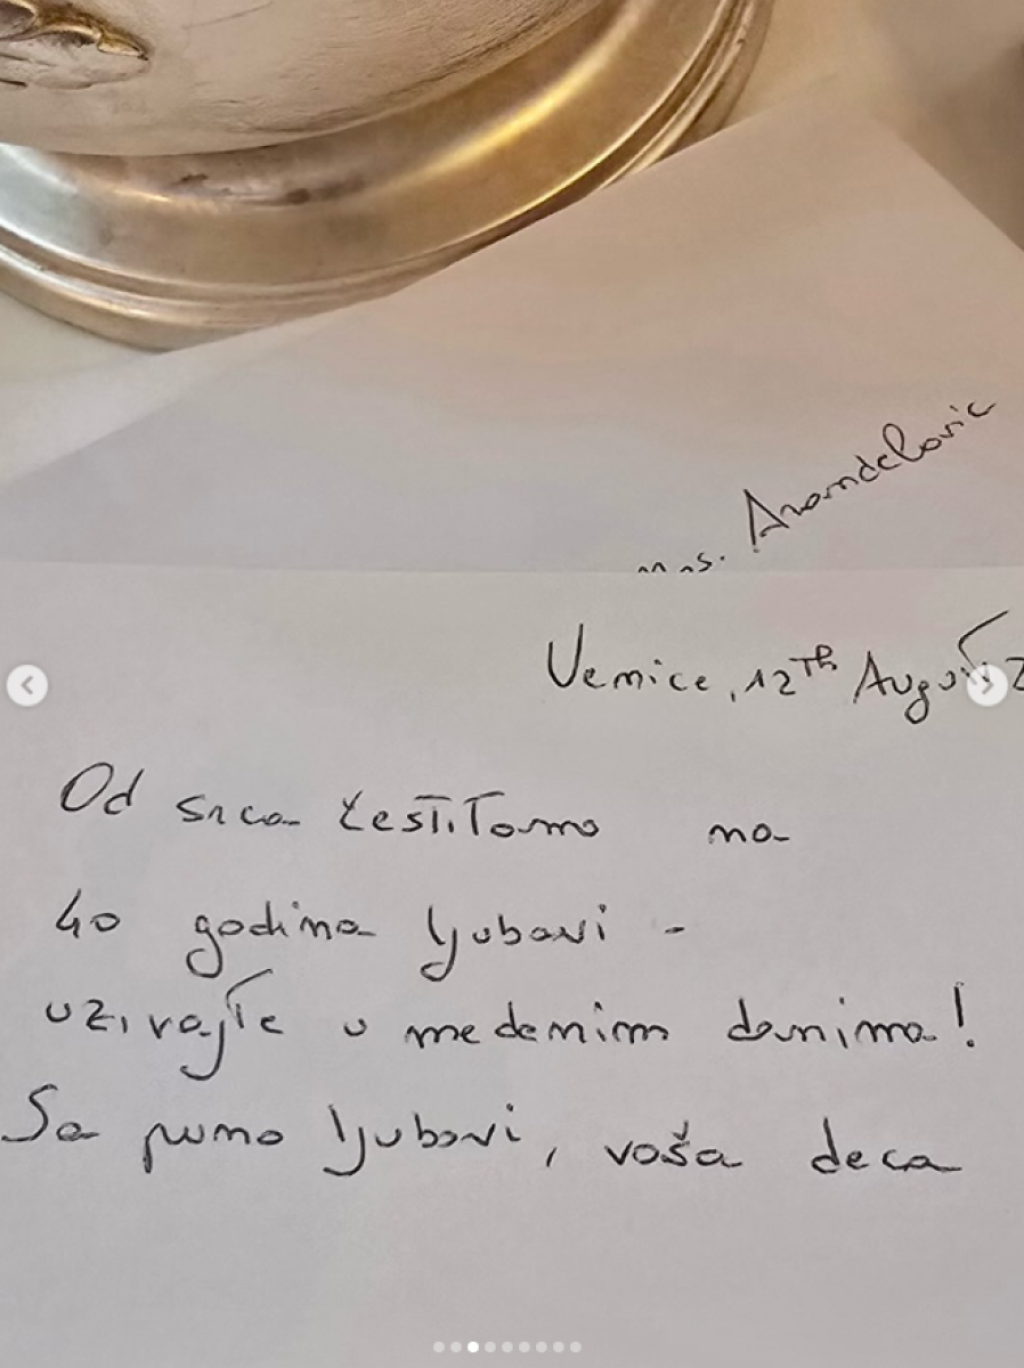 mrs. Arandelovic
Venice, 12th August
Od srca čestitamo na
40 godina ljubavi -
uživajte u medenim danima!
Sa puno ljubavi, vaša deca